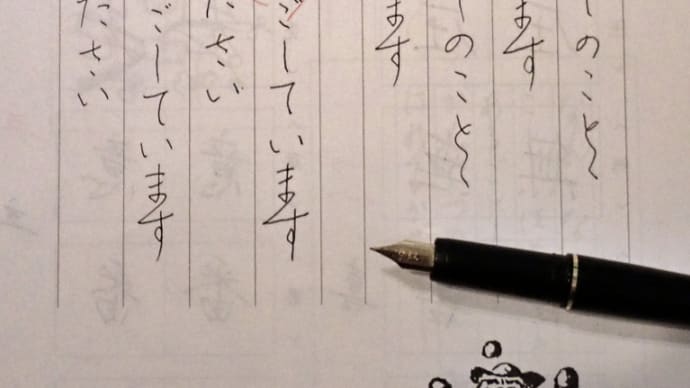 しのことと
ます
しのことと
ます
ごしています
ださい
ごしています
ださい